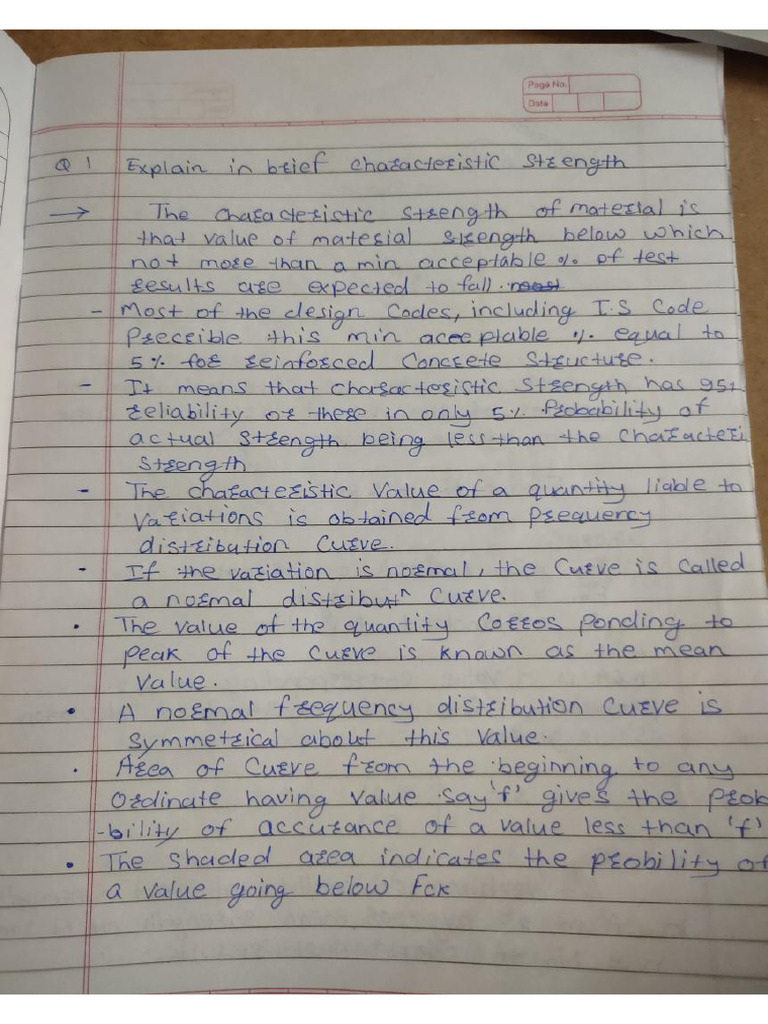 Page No.
Date
Q 1 Explain in brief characteristic Strength
→ The characteristic strength of material is
that value of material strength below which
not more than a min acceptable % of test
results are expected to fall.
- Most of the design Codes, including I.S Code
Preccribe this min acceptable % equal to
5% for reinforced Concrete Structure.
- It means that characteristic Strength has 95%
reliability or there in only 5% Probability of
actual Strength being less than the characteri
Strength
- The characteristic Value of a quantity liable to
Variations is obtained from prequency
distribution Curve.
- If the variation is normal, the Curve is called
a normal distribut^n Curve.
• The value of the quantity Corros ponding to
peak of the curve is known as the mean
Value.
• A normal frequency distribution Curve is
Symmetrical about this Value.
• Area of Curve from the beginning to any
Ordinate having value say 'f' gives the prob
-bility of accurance of a value less than 'f'
• The shaded area indicates the probility of
a value going below Fck